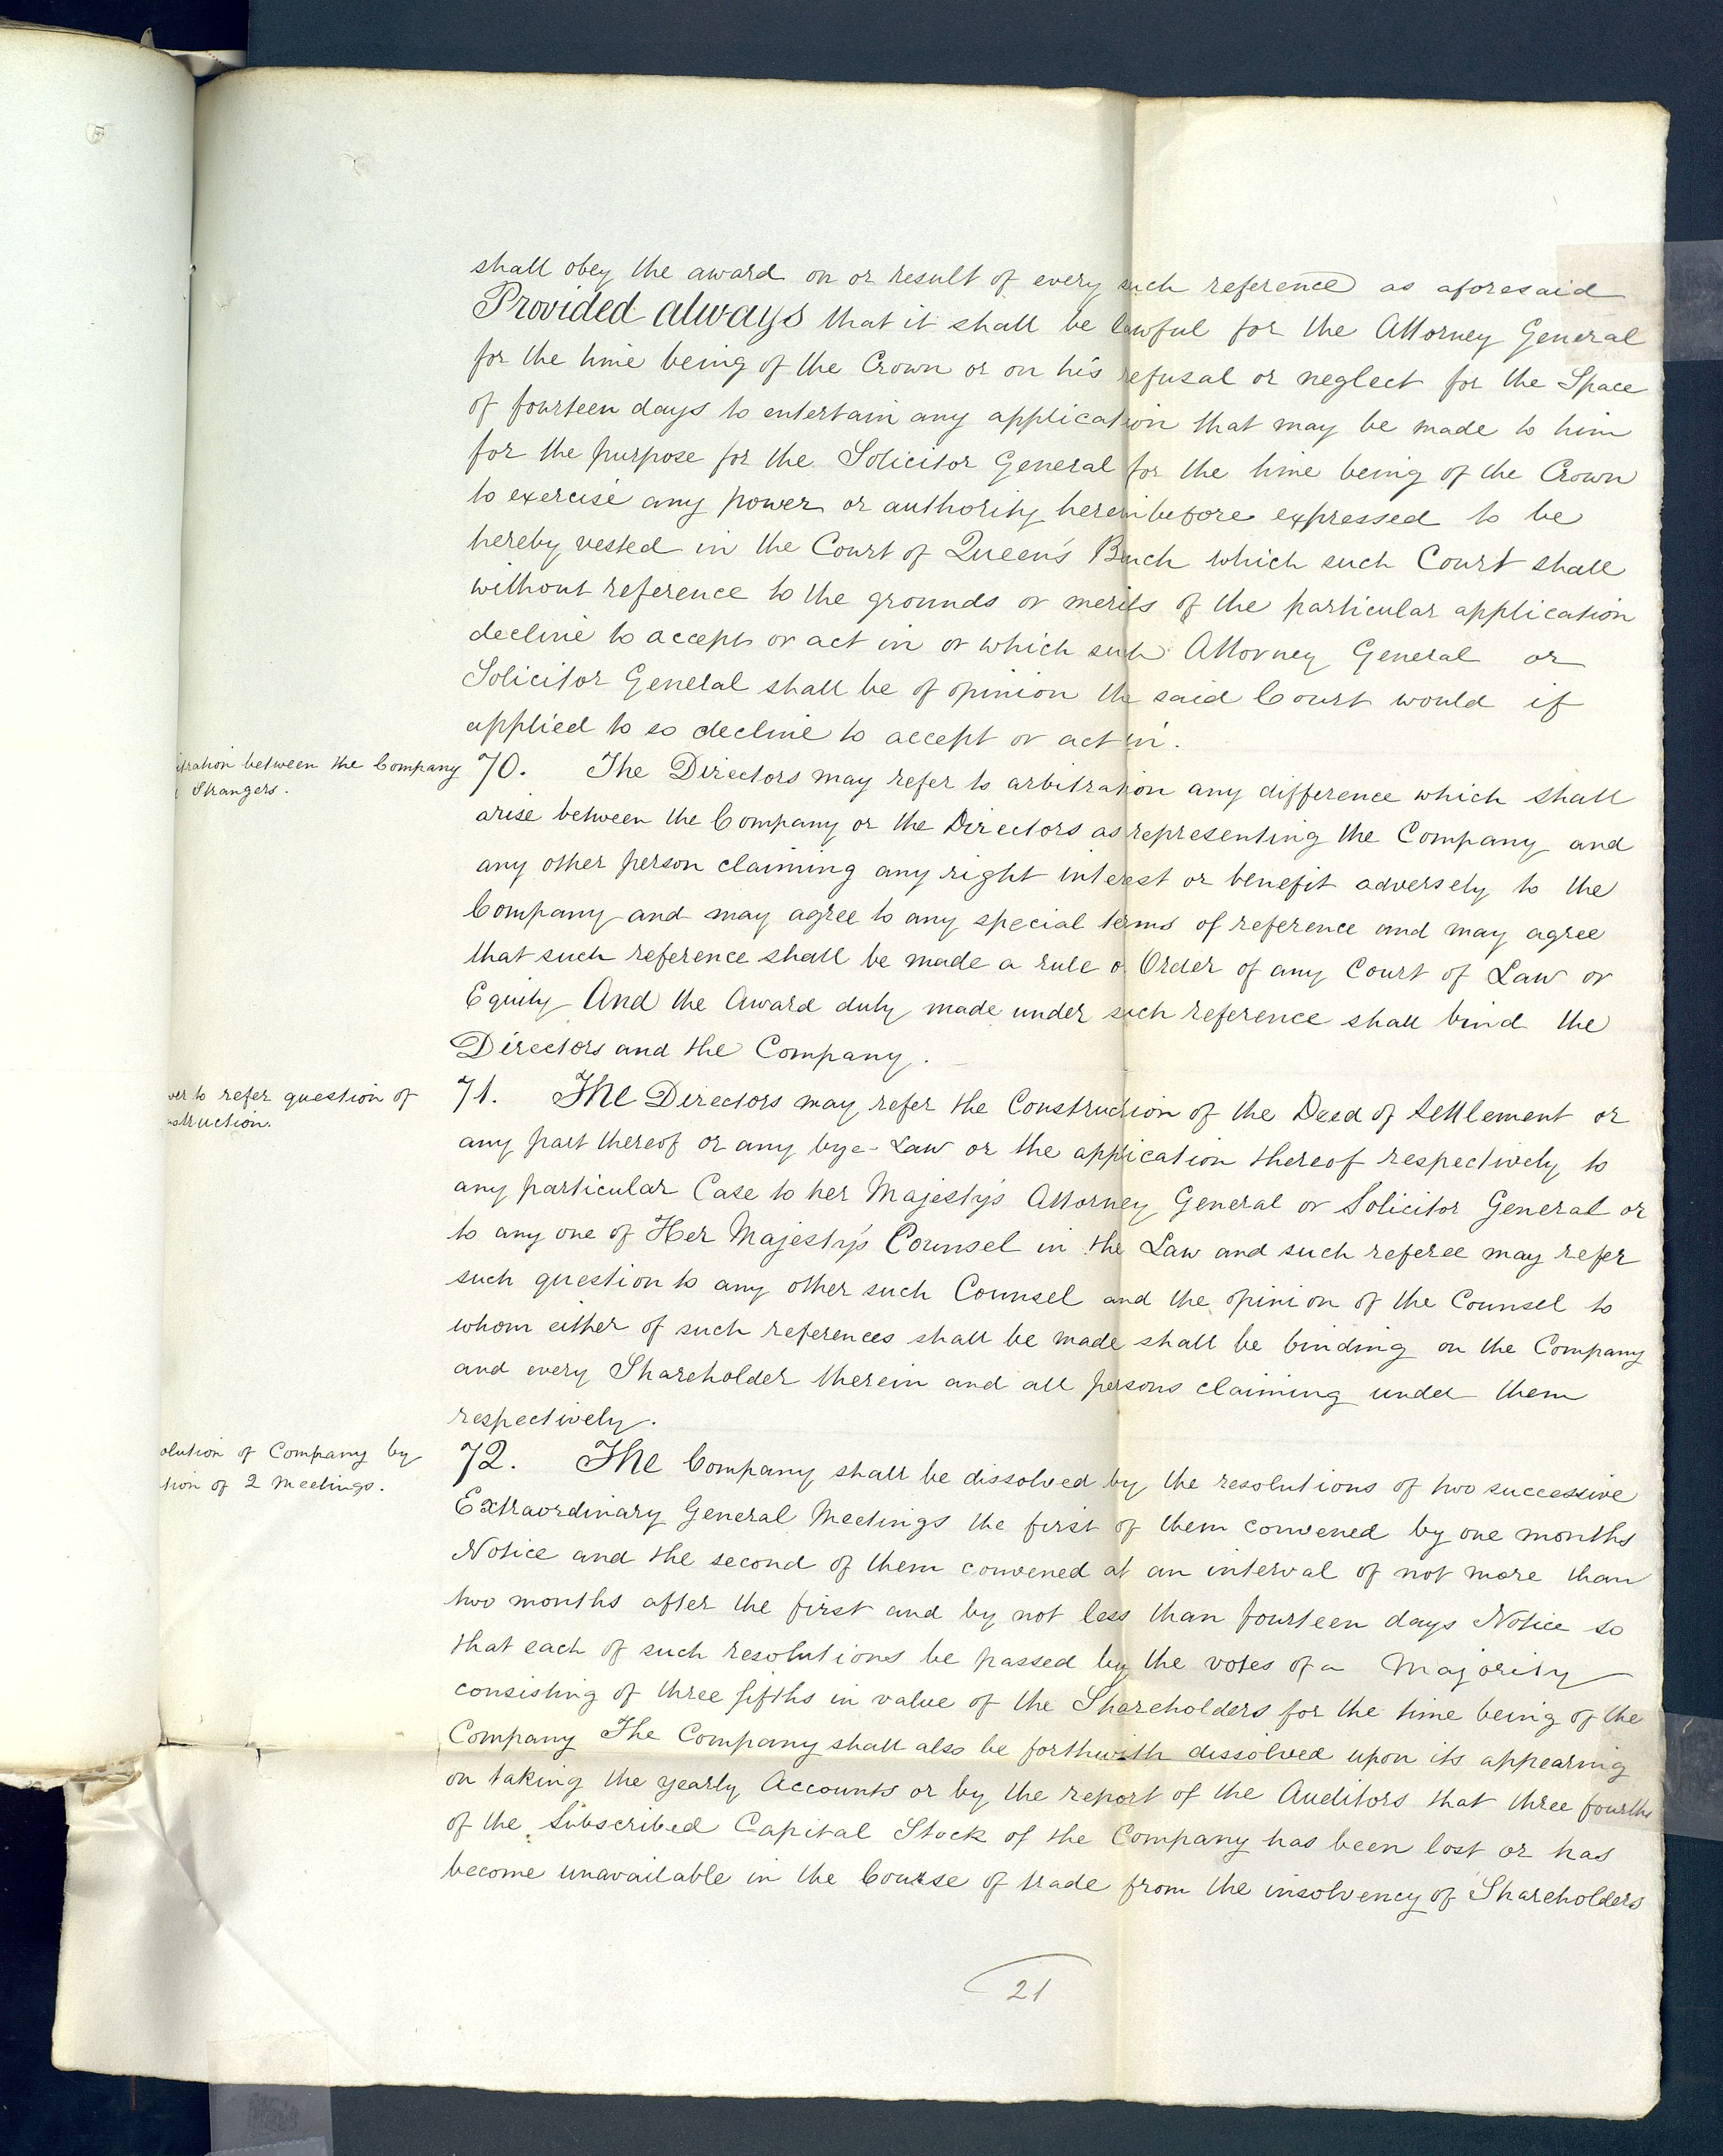 shall obey the award on or result of every such reference as aforesaid
Provided always that it shall be lawful for the Attorney General
for the time being of the Crown or on his refusal or neglect for the Space
of fourteen days to entertain any application that may be made to him
for the purpose for the Solicitor General for the time being of the Crown
to exercise any power or authority hereinbefore expressed to be
hereby vested in the Court of Queen's Bench which such Court shall
without reference to the grounds or merits of the particular application
decline to accept or act in or which such Attorney General or
Solicitor General shall be of opinion the said Court would if
applied to so decline to accept or act in.
itration between the Company
Strangers.
70. The Directors may refer to arbitration any difference which shall
arise between the Company or the Directors as representing the Company and
any other person claiming any right interest or benefit adversely to the
Company and may agree to any special terms of reference and may agree
that such reference shall be made a rule or Order of any Court of Law or
Equity And the Award duly made under such reference shall bind the
Directors and the Company.
wer to refer question of
nstruction.
71. The Directors may refer the Construction of the Deed of Settlement or
any part thereof or any bye-Law or the application thereof respectively to
any particular Case to her Majesty's Attorney General or Solicitor General or
to any one of Her Majesty's Counsel in the Law and such referee may refer
such question to any other such Counsel and the opinion of the Counsel to
whom either of such references shall be made shall be binding on the Company
and every Shareholder therein and all persons claiming under them
respectively.
olution of Company by
tion of 2 Meetings.
72. The Company shall be dissolved by the resolutions of two successive
Extraordinary General Meetings the first of them convened by one months
Notice and the second of them convened at an interval of not more than
two months after the first and by not less than fourteen days Notice so
that each of such resolutions be passed by the votes of a Majority
consisting of three fifths in value of the Shareholders for the time being of the
Company The Company shall also be forthwith dissolved upon its appearing
on taking the yearly Accounts or by the report of the Auditors that three fourths
of the Subscribed Capital Stock of the Company has been lost or has
become unavailable in the Course of trade from the insolvency of Shareholders
21